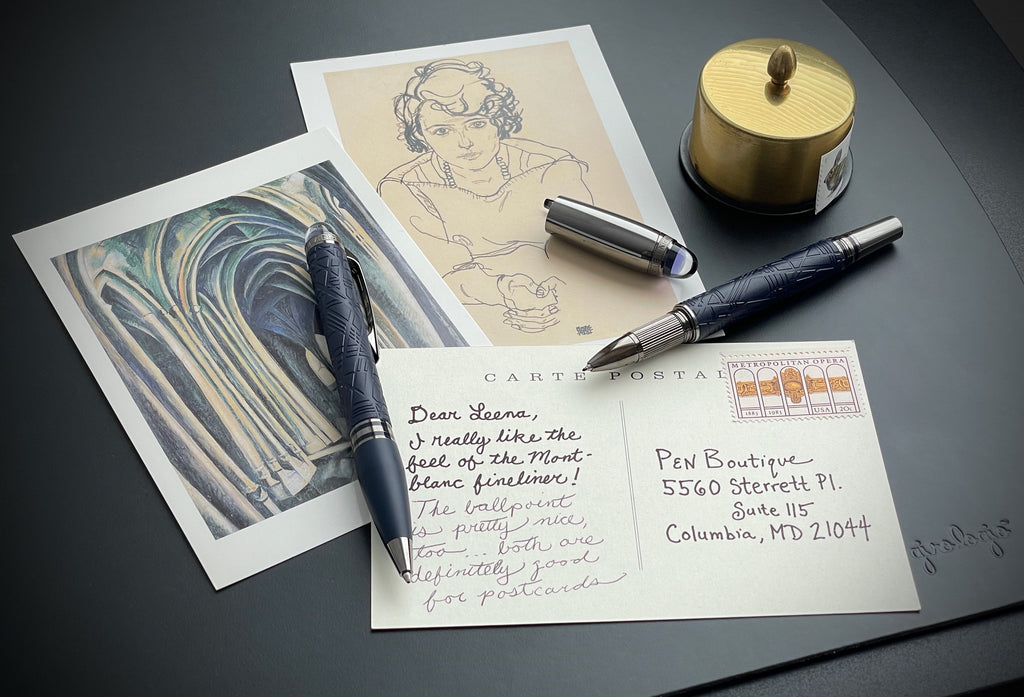 CARTE POSTAL
METROPOLITAN OPERA
1883 1983 USA 20c
Dear Leena,
I really like the
feel of the Mont-
blanc fineliner!
The ballpoint
is pretty nice,
too... both are
definitely good
for postcards
PEN Boutique
5560 Sterrett Pl.
Suite 115
Columbia, MD 21044
girologio